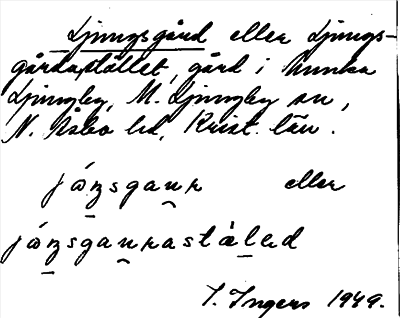 Ljungsgård eller Ljungs-
gårdastället, gård i Munka
Ljungby, M. Ljungby sn,
N. Åsbo hd, Krist. län.
jóŋsgaụr eller
jóŋsgaụrastä̱led
I. Ingers 1949.